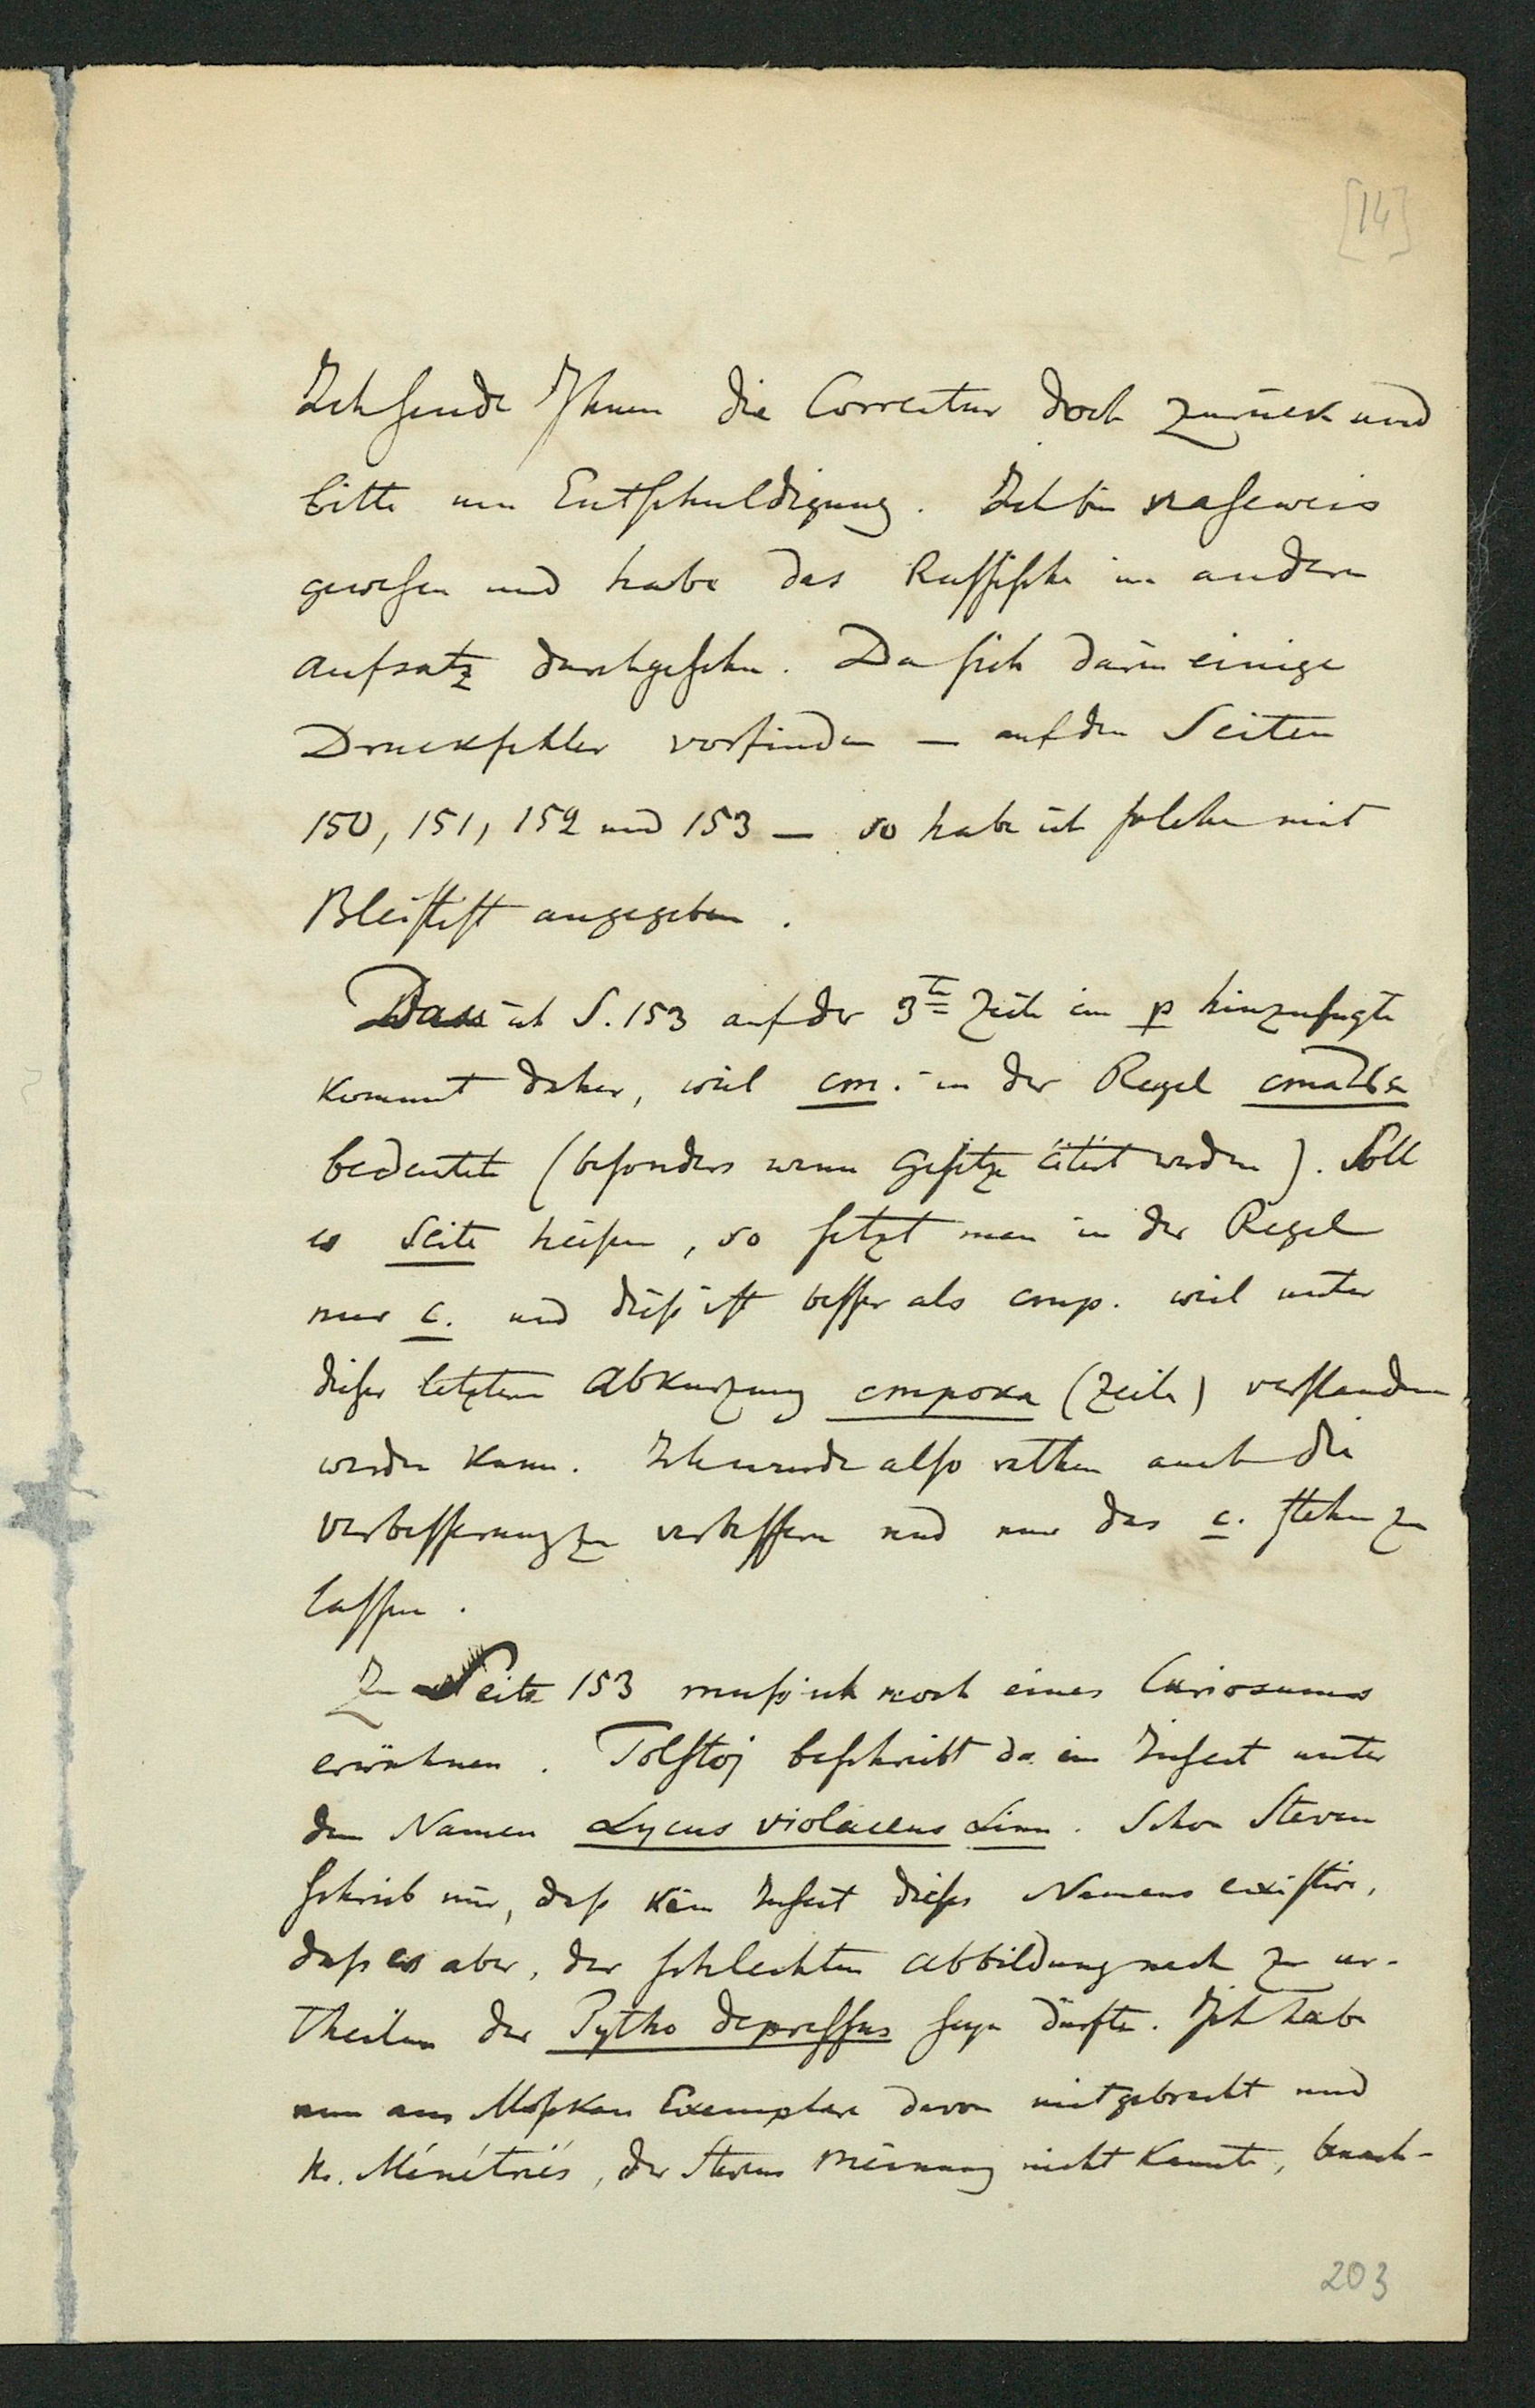 [14]
Ich sende Ihnen die Correctur doch zurück und
bitte um Entschuldigung. Ich bin naseweis
gewesen und habe das Russische im andern
Aufsatz durchgesehn. Da sich darin einige
Druckfehler vorfinden — auf den Seiten
150, 151, 152 und 153 — so habe ich solche mit
Bleistift angegeben.
Dass ich S. 153 auf der 3ten Zeile ein р hinzufügte
kommt daher, weil ст. in der Regel статья
bedeutet (besonders wenn Gesetze citirt werden). Soll
es Seite heißen, so setzt man in der Regel
nur с. und dieß ist besser als стр. weil unter
dieser letztern Abkürzung строка (Zeile) verstanden
werden kann. Ich würde also rathen auch die
Verbesserung zu verbessern und nur das с. stehen zu
lassen.
Zu Seite 153 muß ich noch eines Curiosums
erwähnen. Tolstoj beschreibt da ein Insect unter
dem Namen Lycus violaceus Linn. Schon Steven
schrieb mir, daß kein Insect dieses Namens existire,
daß es aber, der schlechten Abbildung nach zu ur-
theilen der Pytho depressus seyn dürfte. Ich habe
nun aus Moskau Exemplare davon mitgebracht und
Hr. Ménétriés, der Stevens Meinung nicht kannte, benach-
203